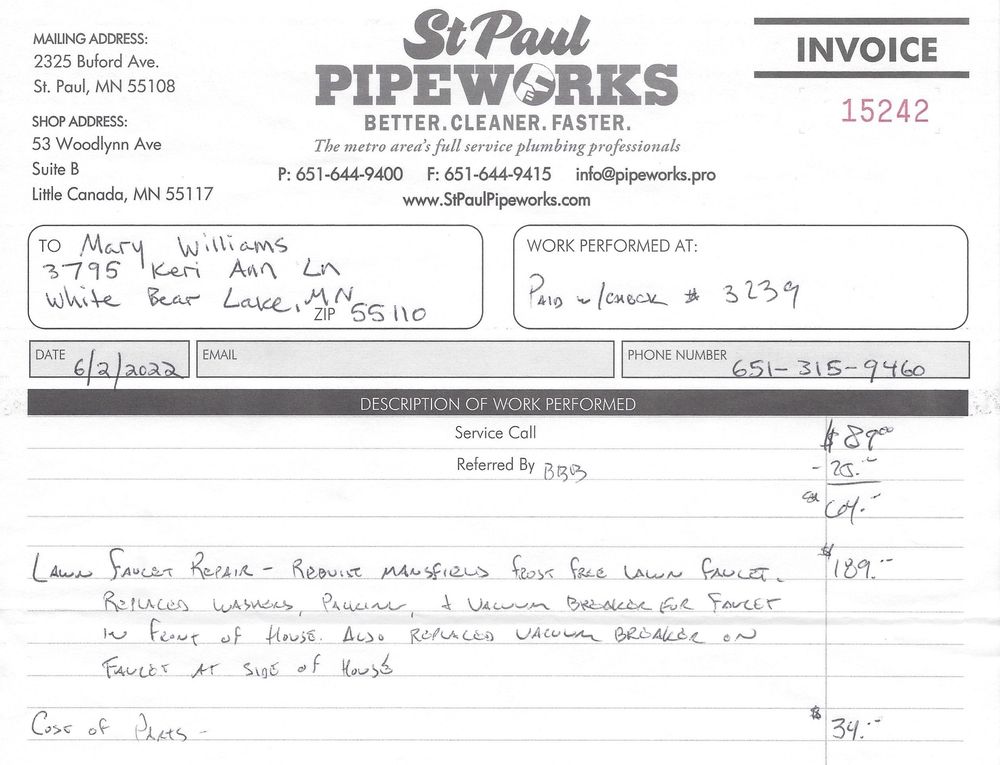 MAILING ADDRESS:
2325 Buford Ave.
St. Paul, MN 55108
SHOP ADDRESS:
53 Woodlynn Ave
Suite B
Little Canada, MN 55117
St Paul
PIPEWORKS
BETTER. CLEANER. FASTER.
The metro area's full service plumbing professionals
P: 651-644-9400 F: 651-644-9415 info@pipeworks.pro
www.StPaulPipeworks.com
INVOICE
15242
TO Mary Williams
3795 Keri Ann Ln
White Bear Lake, MN
ZIP 55110
WORK PERFORMED AT:
PAID w/CHECK # 3239
DATE 6/2/2022
EMAIL
PHONE NUMBER 651-315-9460
DESCRIPTION OF WORK PERFORMED
Service Call $89.00
Referred By BBB -25.-
$64.-
LAWN FAUCET REPAIR - REBUILT MANSFIELD FROST FREE LAWN FAUCET. $189.-
REPLACED WASHERS, PACKING, + VACUUM BREAKER FOR FAUCET
IN FRONT OF HOUSE. ALSO REPLACED VACUUM BREAKER ON
FAUCET AT SIDE OF HOUSE
COST OF PARTS - $34.-